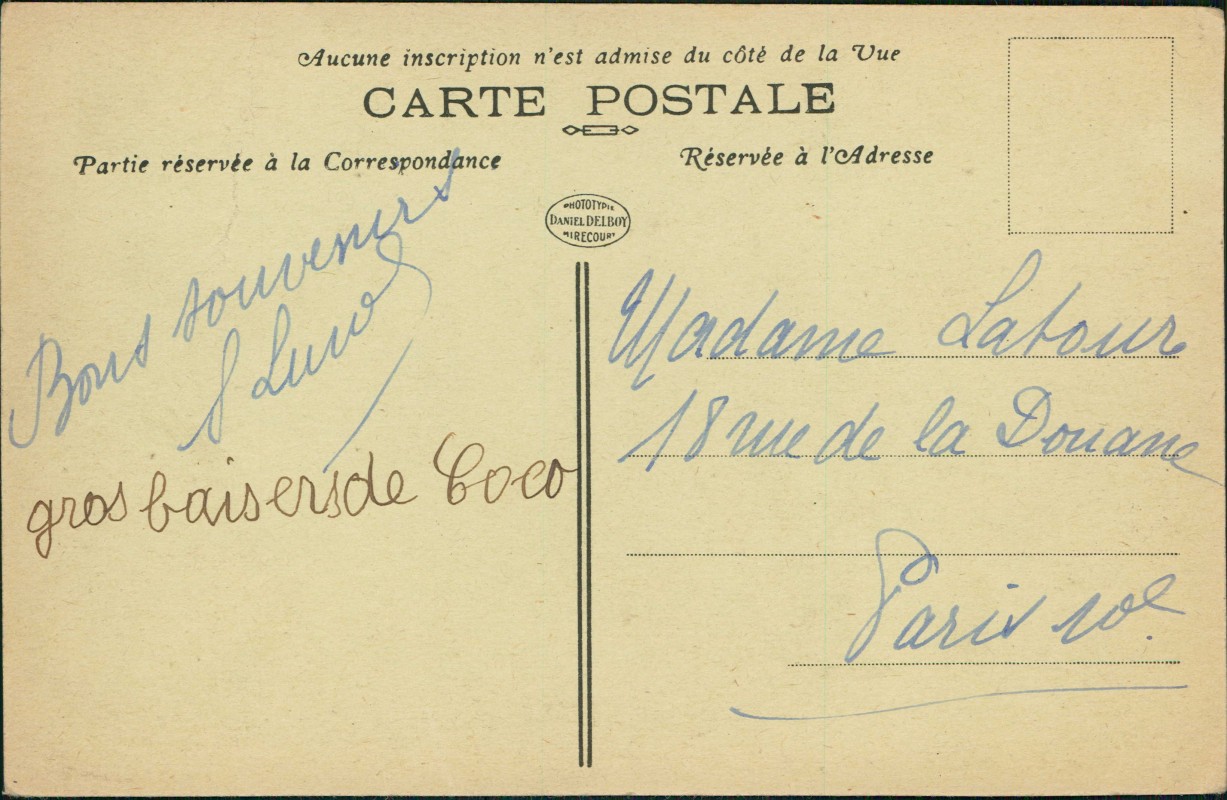 Aucune inscription n'est admise du côté de la Vue
CARTE POSTALE
Partie réservée à la Correspondance
Réservée à l'Adresse
PHOTOTYPIE
DANIEL DELBOY
MIRECOURT
Bons souvenirs
gros baisers de Coco
Madame Latour
18 rue de la Douane
Paris 10e